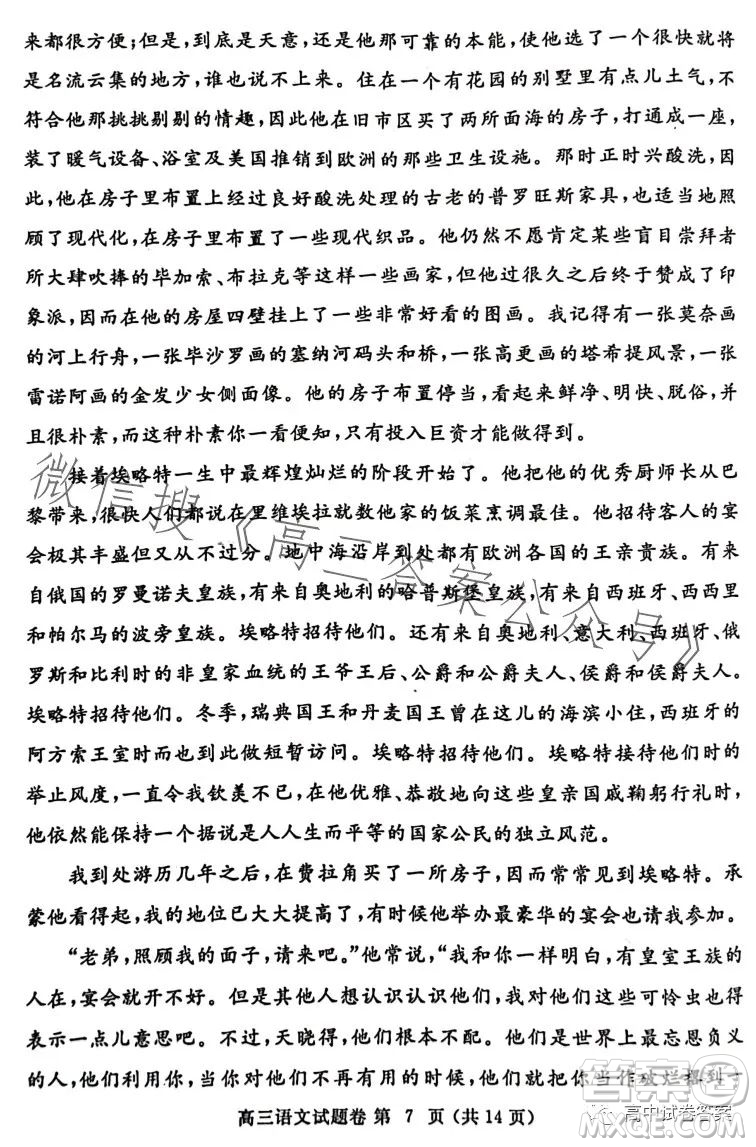 来都很方便;但是,到底是天意,还是他那可靠的本能,使他选了一个很快就将
是名流云集的地方,谁也说不上来。住在一个有花园的别墅里有点儿土气,不
符合他那挑挑剔剔的情趣,因此他在旧市区买了两所面海的房子,打通成一座,
装了暖气设备、浴室及美国推销到欧洲的那些卫生设施。那时正时兴酸洗,因
此,他在房子里布置上经过良好酸洗处理的古老的普罗旺斯家具,也适当地照
顾了现代化,在房子里布置了一些现代织品。他仍然不愿肯定某些盲目崇拜者
所大肆吹捧的毕加索、布拉克等这样一些画家,但他过很久之后终于赞成了印
象派,因而在他的房屋四壁挂上了一些非常好看的图画。我记得有一张莫奈画
的河上行舟,一张毕沙罗画的塞纳河码头和桥,一张高更画的塔希提风景,一张
雷诺阿画的金发少女侧面像。他的房子布置停当,看起来鲜净、明快、脱俗,并
且很朴素,而这种朴素你一看便知,只有投入巨资才能做得到。
接着埃略特一生中最辉煌灿烂的阶段开始了。他把他的优秀厨师长从巴
黎带来,很快人们都说在里维埃拉就数他家的饭菜烹调最佳。他招待客人的宴
会极其丰盛但又从不过分。地中海沿岸到处都有欧洲各国的王亲贵族。有来
自俄国的罗曼诺夫皇族,有来自奥地利的哈普斯堡皇族,有来自西班牙、西西里
和帕尔马的波旁皇族。埃略特招待他们。还有来自奥地利、意大利、西班牙、俄
罗斯和比利时的非皇家血统的王爷王后、公爵和公爵夫人、侯爵和侯爵夫人。
埃略特招待他们。冬季,瑞典国王和丹麦国王曾在这儿的海滨小住,西班牙的
阿方索王室时而也对此做短暂访问。埃略特招待他们。埃略特接待他们时的
举止风度,一直令我钦羡不已,在他优雅、恭敬地向这些皇亲国戚鞠躬行礼时,
他依然能保持一个据说是人人生而平等的国家公民的独立风范。
我到处游历几年之后,在费拉角买了一所房子,因而常常见到埃略特。承
蒙他看得起,我的地位已大大提高了,有时候他举办最豪华的宴会也请我参加。
“老弟,照顾我的面子,请来吧。”他常说,“我和你一样明白,有皇室王族的
人在,宴会就开不好。但是其他人想认识认识他们,我对他们这些可怜虫也得
表示一点儿意思吧。不过,天晓得,他们根本不配。他们是世界上最忘恩负义
的人,他们利用你,当他们不再有用的时候,他们就把你当作破烂撂到一
高三语文试题卷 第 7 页(共14页)
微信搜《高三答案公众号》
答案圈
MXQE.COM
高中试卷答案